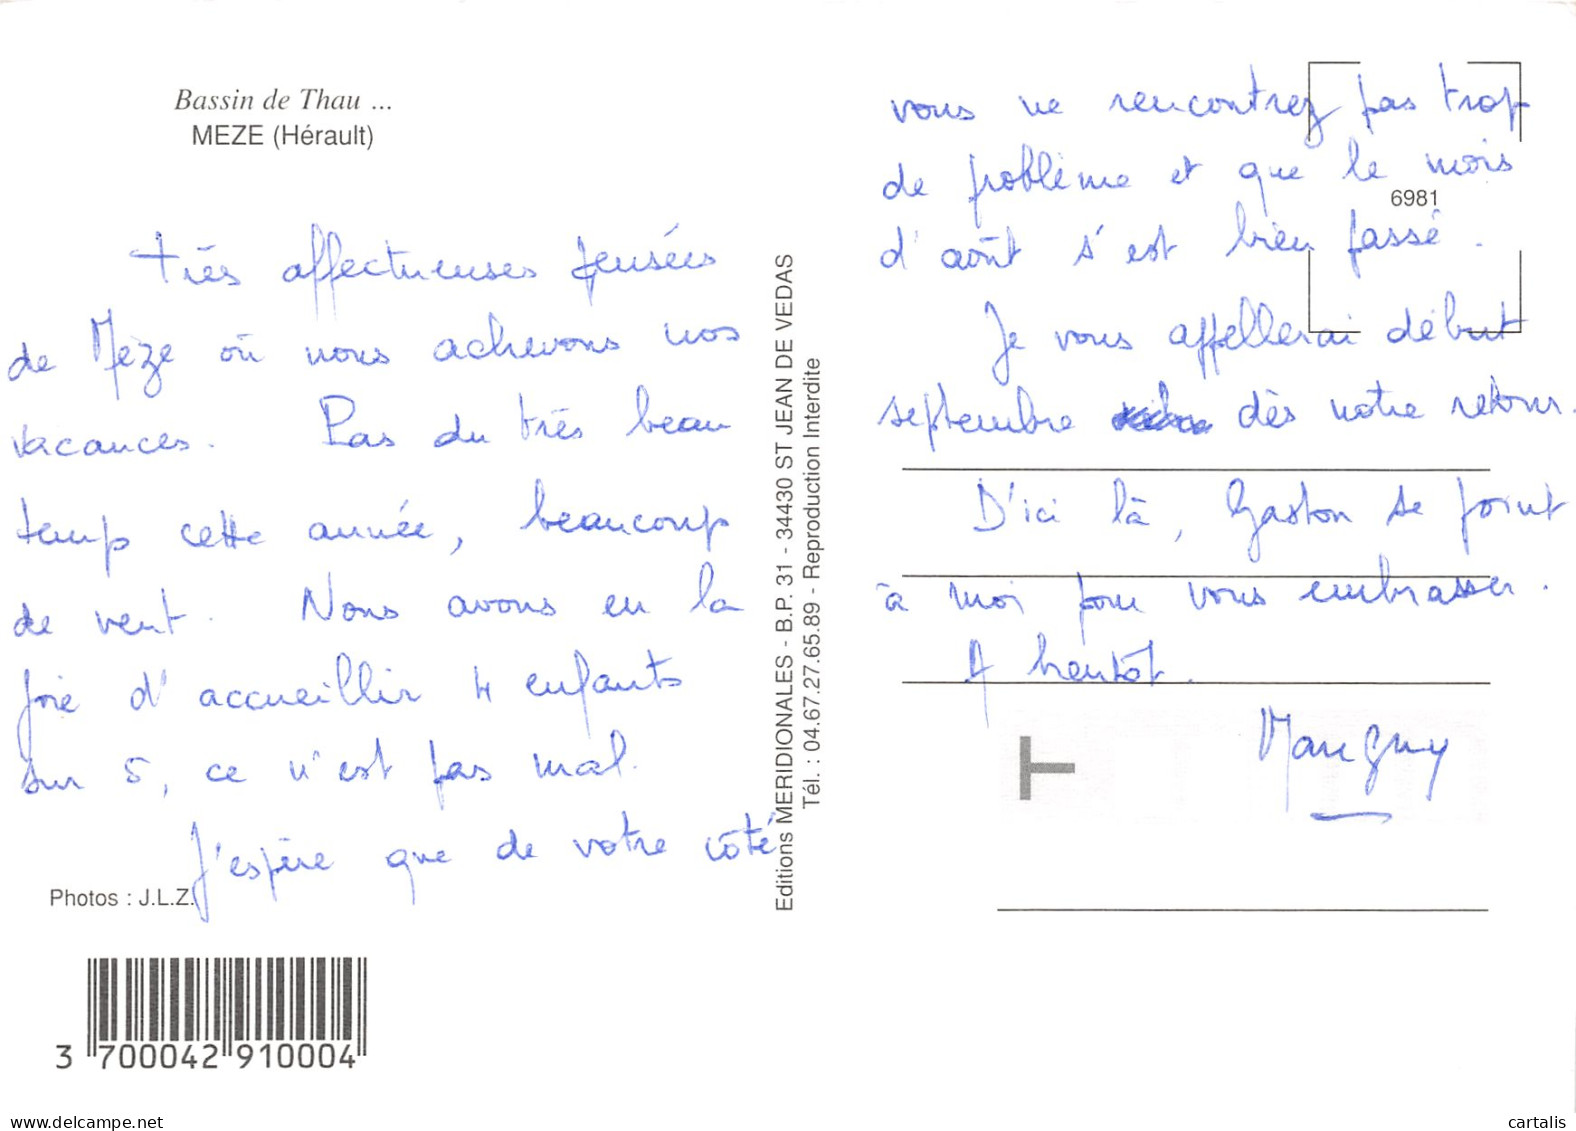 Bassin de Thau ...
MEZE (Hérault)
très affectueuses pensées
de Mèze où nous achevons nos
vacances. Pas du très beau
temps cette année, beaucoup
de vent. Nous avons eu la
joie d'accueillir 4 enfants
sur 5, ce n'est pas mal.
J'espère que de votre côté
Photos : J.L.Z.
3 700042 910004
Editions MERIDIONALES - B.P. 31 - 34430 ST JEAN DE VEDAS
Tél. : 04.67.27.65.89 - Reproduction Interdite
vous ne rencontrez pas trop
de problème et que le mois
6981
d'août s'est bien passé.
Je vous appellerai début
septembre dès notre retour.
D'ici là, Gaston se joint
à moi pour vous embrasser.
A bientôt.
T
delcampe.net
cartalis